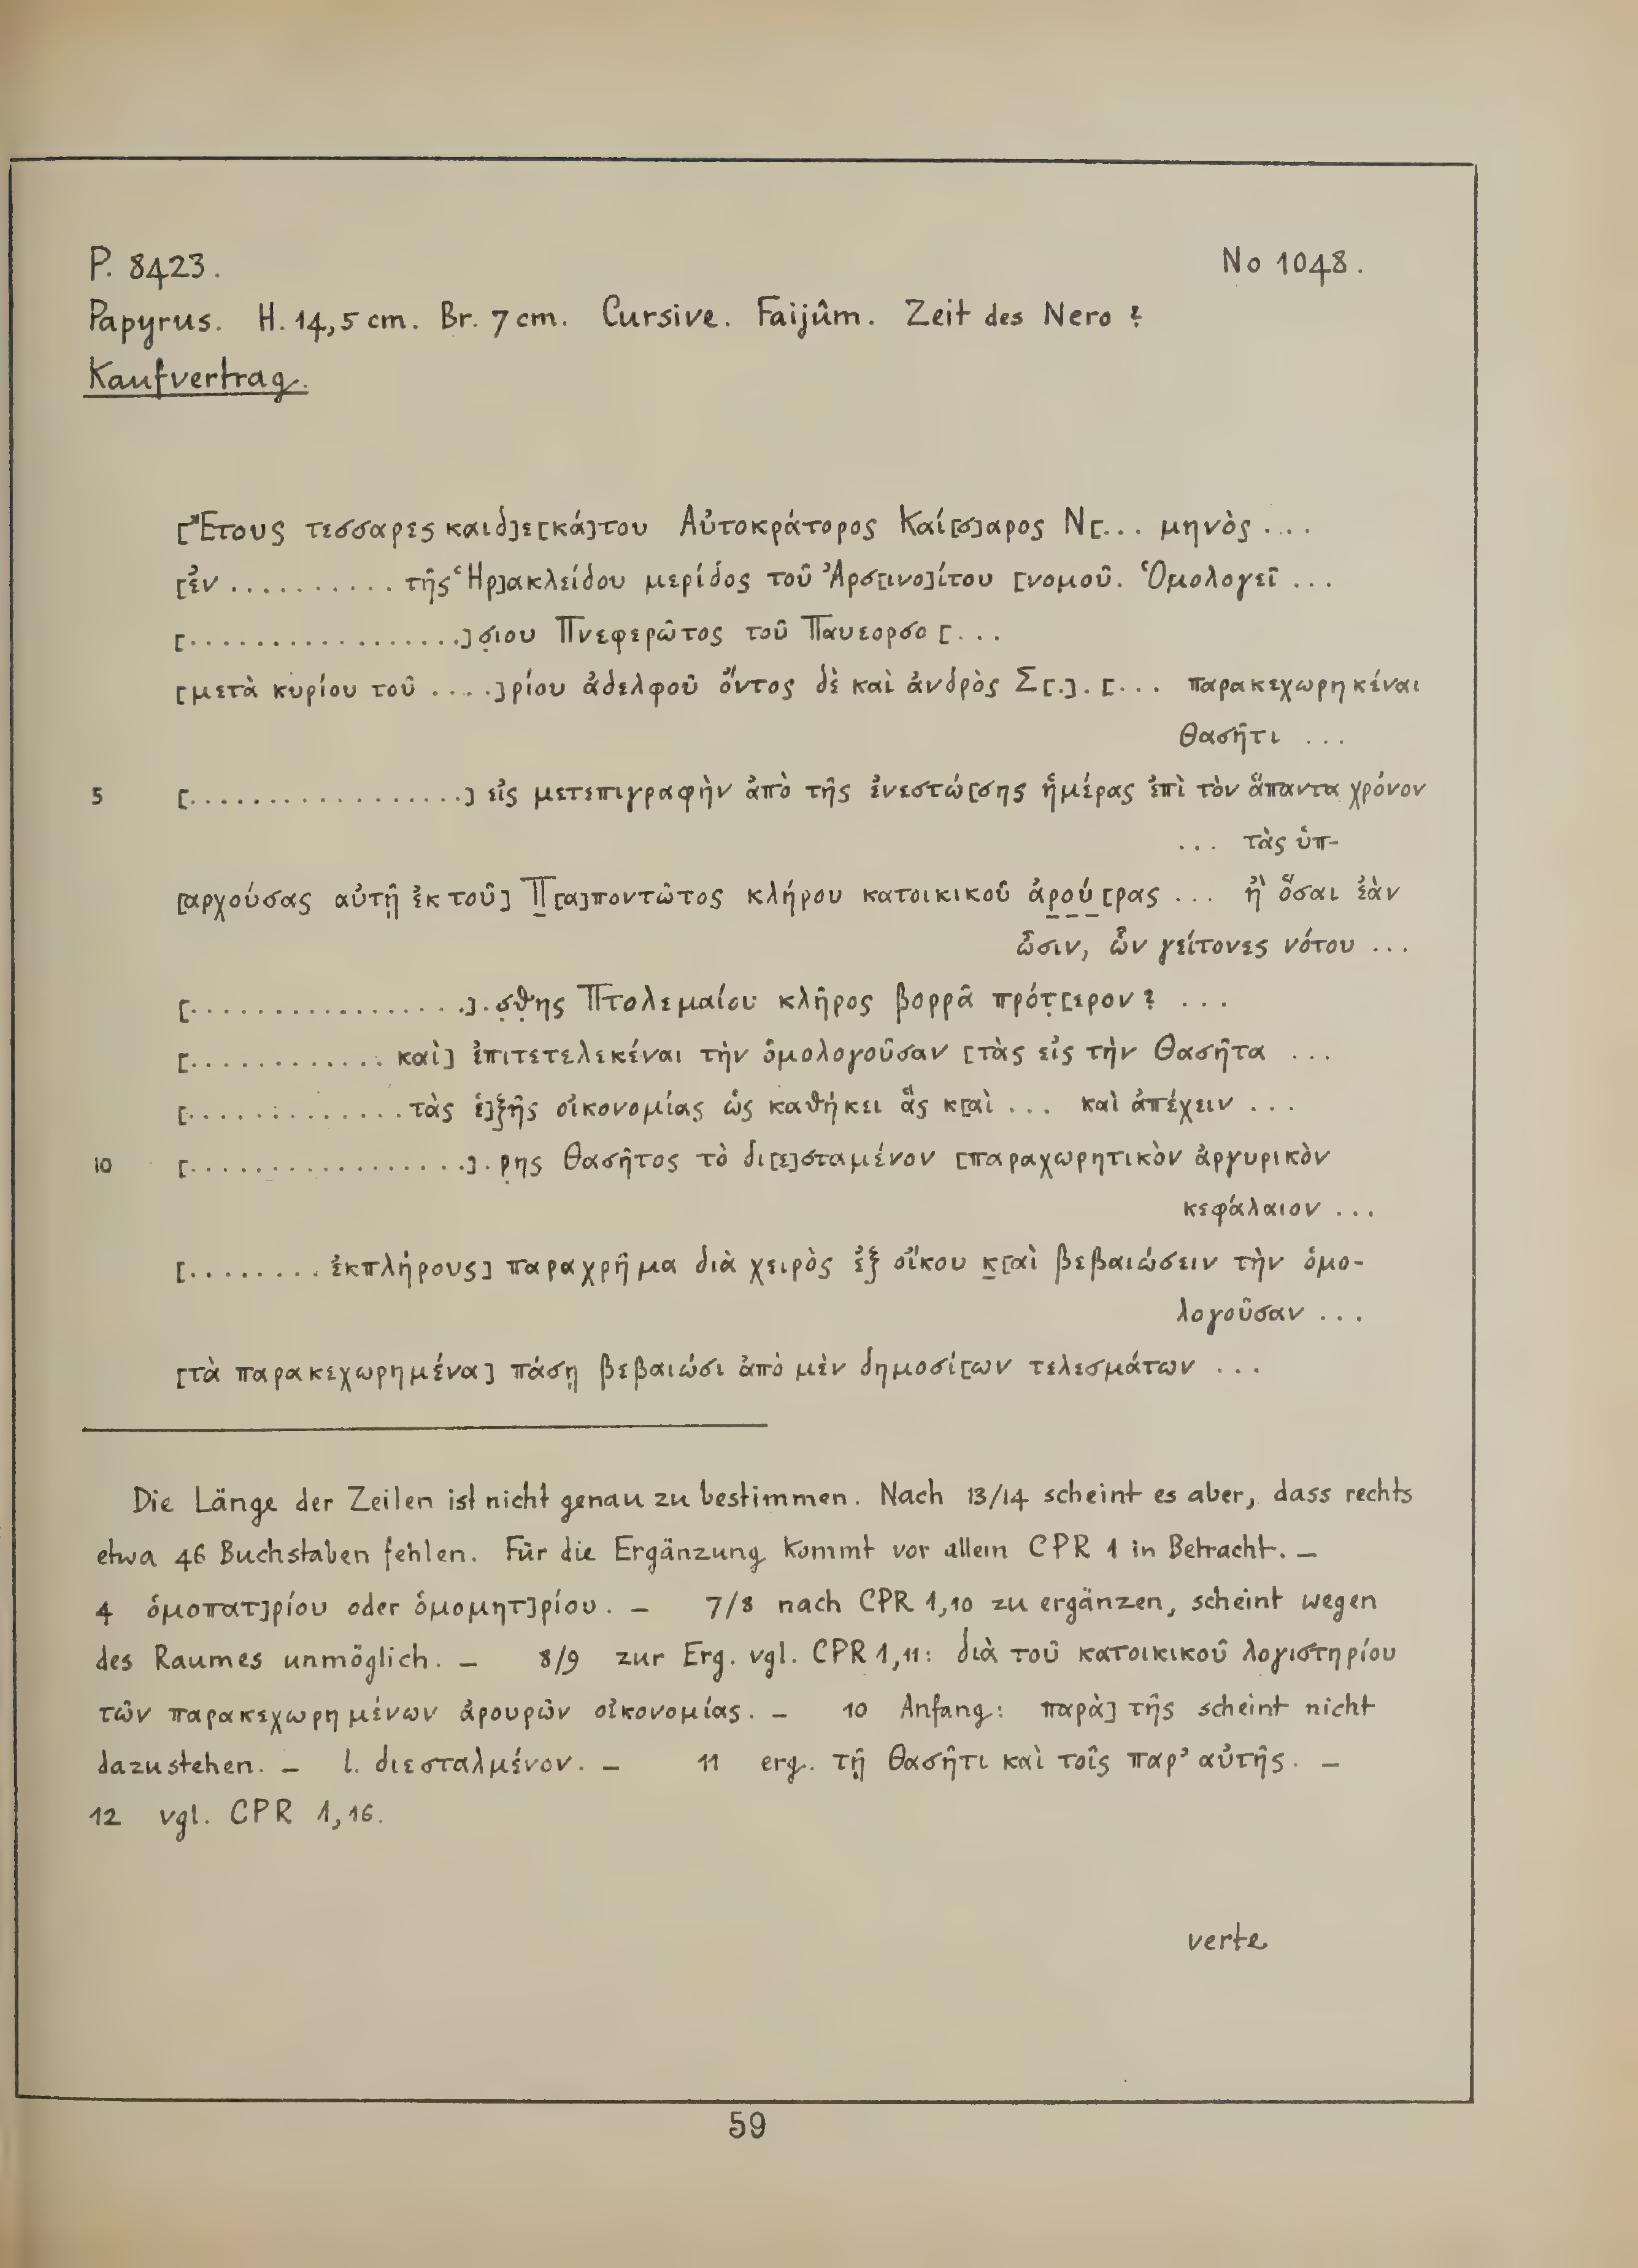 P. 8423. No 1048.
Papyrus. H. 14,5 cm. Br. 7 cm. Cursive. Faijûm. Zeit des Nero ?
Kaufvertrag.
[Ἔτους τεσσαρες καιδ]ε[κά]του Αὐτοκράτορος Καί[σ]αρος Ν[... μηνὸς ...
[ἐν .......... τῆς Ἡρ]ακλείδου μερίδος τοῦ Ἀρσ[ινο]ίτου [νομοῦ. Ὁμολογεῖ ...
[..................]σ̣ιου Πνεφερῶτος τοῦ Παυεορσο[...
[μετὰ κυρίου τοῦ .....]ρίου ἀδελφοῦ ὄντος δὲ καὶ ἀνδρὸς Σ[.].[... παρακεχωρηκέναι
Θασῆτι ...
5 [..................] εἰς μετεπιγραφὴν ἀπὸ τῆς ἐνεστώ[σης ἡμέρας ἐπὶ τὸν ἅπαντα χρόνον
... τὰς ὑπ-
[αρχούσας αὐτῇ ἐκ τοῦ] Π̣[α]ποντῶτος κλήρου κατοικικοῦ ἀρ̣ο̣ύ̣[ρας ... ἢ ὅσαι ἐὰν
ὦσιν, ὧν γείτονες νότου ...
[..................].σ̣θ̣ης Πτολεμαίου κλῆρος βορρᾶ πρότ̣[ερον ? ...
[............. καὶ] ἐπιτετελεκέναι τὴν ὁμολογοῦσαν [τὰς εἰς τὴν Θασῆτα ...
[..............τὰς ἑ]ξ̣ῆς οἰκονομίας ὡς καθήκει ἃς κ[αὶ ... καὶ ἀπέχειν ...
10 [..................].ρ̣ης Θασῆτος τὸ δι[ε]σταμένον [παραχωρητικὸν ἀργυρικὸν
κεφάλαιον ...
[......... ἐκπλήρους] παραχρῆμα διὰ χειρὸς ἐξ οἴκου κ̣[αὶ βεβαιώσειν τὴν ὁμο-
λογοῦσαν ...
[τὰ παρακεχωρημένα] πάσῃ βεβαιώσι ἀπὸ μὲν δημοσί[ων τελεσμάτων ...
Die Länge der Zeilen ist nicht genau zu bestimmen. Nach 13/14 scheint es aber, dass rechts
etwa 46 Buchstaben fehlen. Für die Ergänzung kommt vor allem CPR 1 in Betracht. –
4 ὁμοπατ]ρίου oder ὁμομητ]ρίου. – 7/8 nach CPR 1,10 zu ergänzen, scheint wegen
des Raumes unmöglich. – 8/9 zur Erg. vgl. CPR 1,11: διὰ τοῦ κατοικικοῦ λογιστηρίου
τῶν παρακεχωρημένων ἀρουρῶν οἰκονομίας. – 10 Anfang: παρὰ] τῆς scheint nicht
dazustehen. – l. διεσταλμένον. – 11 erg. τῇ Θασῆτι καὶ τοῖς παρ' αὐτῆς. –
12 vgl. CPR 1,16.
verte
59